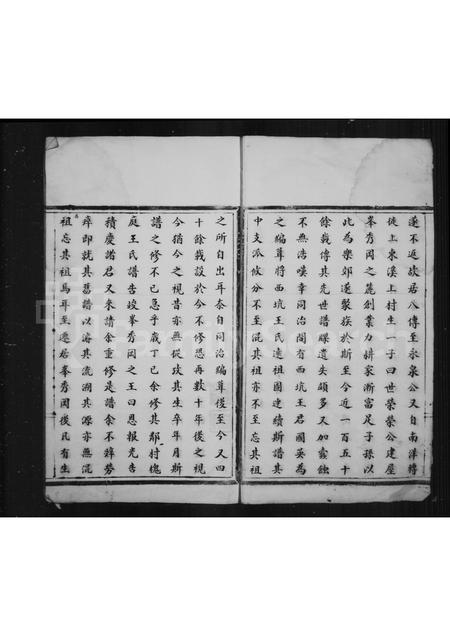 遂不返故居八傳至永泉公又自南洋轉
徙上東溪上村生一子曰世榮榮公建屋
峯秀岡之麓創業力耕家漸富足子孫以
此為樂郊遂聚族於斯至今近一百五十
餘載傳其先世譜牒遺失頗多又加蠹蝕
不無浩嘆幸同治間有西坑王君國英為
之編葺將西坑王氏遠祖圖連續斯譜其
中支派攸分不至混其祖亦不至忘其祖
之所自出耳奈自同治編葺後至今又四
十餘載設於今不修恐再數十年後之視
今猶今之視昔亦無從攷其生卒年月斯
譜之修不已急乎歲丁巳余修其鄰村槐
庭王氏譜告竣峯秀岡之王曰恩報光告
積慶諸君又來請余重修是譜余不辭勞
瘁即就其舊譜以濬其流溯其源亦無混
祖忘其祖焉耳至遷居峯秀岡後凡有生